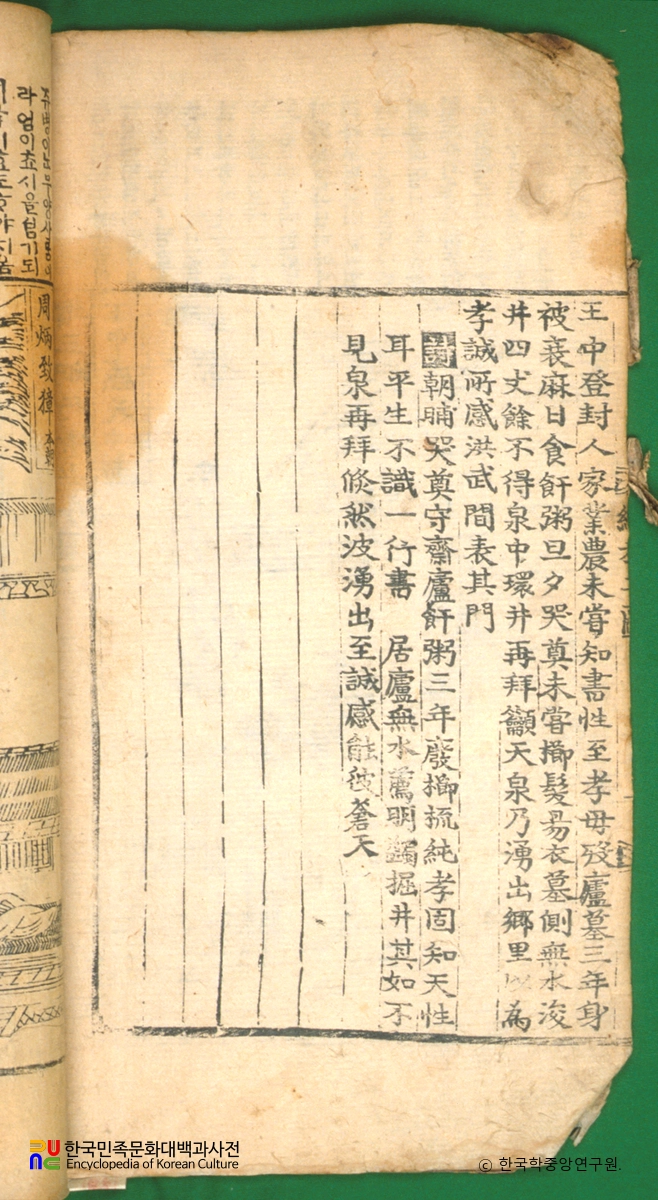 王中登封人家業農未嘗知書性至孝母歿廬墓三年身
被衰麻日食飦粥旦夕哭奠未嘗櫛髮易衣墓側無水浚
井四丈餘不得泉中環井再拜籲天泉乃湧出鄉里以為
孝誠所感洪武間表其門
詩朝晡哭奠守齋廬飦粥三年廢櫛梳純孝固知天性
耳平生不識一行書 居廬無水薦明蠲掘井其如不
見泉再拜倐然波湧出至誠感能彼蒼天
라엄이쵸시을섬기되
周炳致獐 本朝
한국민족문화대백과사전
Encyclopedia of Korean Culture
© 한국학중앙연구원.